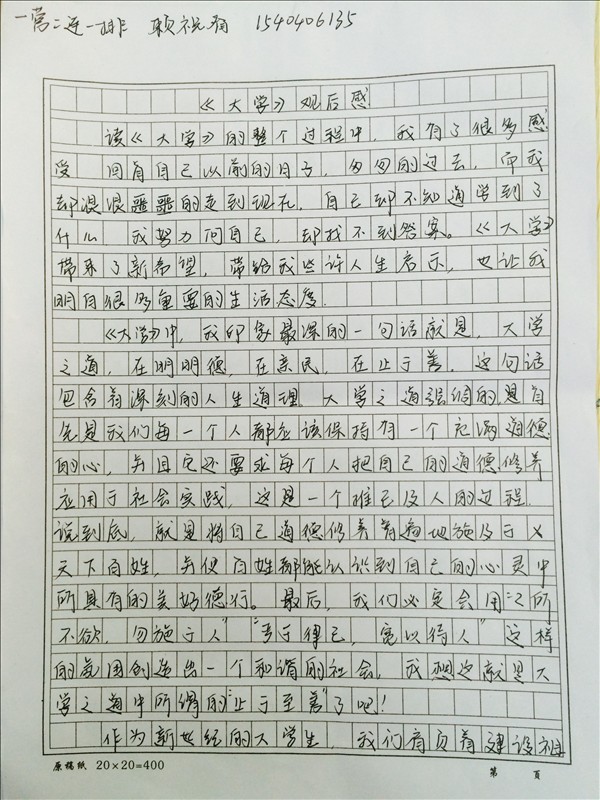 一营二连一排 赖祝有 1540406135
《大学》观后感
读《大学》的整个过程中，我有了很多感
受 回首自己以前的日子，匆匆的过去，而我
却浪浪噩噩的走到现在，自己却不知道学到了
什么 我努力问自己，却找不到答案。《大学》
带来了新希望，带给我些许人生启示，也让我
明白很多重要的生活态度.
《大学》中，我印象最深的一句话就是，大学
之道，在明明德，在亲民，在止于善。这句话
包含着深刻的人生道理 大学之道强调的是首
先是我们每一个人都应该保持有一个充满道德
的心，并且它还要求每个人把自己的道德修养
应用于社会实践，这是一个推己及人的过程.
说到底，就是将自己道德修养普遍地施及于
天下百姓，并使百姓都能认识到自己的心灵中
所具有的美好德行。最后，我们必定会用"己所
不欲，勿施于人""严于律己，宽以待人"这样
的氛围创造出一个和谐的社会。我想这就是大
学之道中所谓的"止于至善"了吧！
作为新世纪的大学生，我们肩负着建设祖
原稿纸 20×20=400
第 页